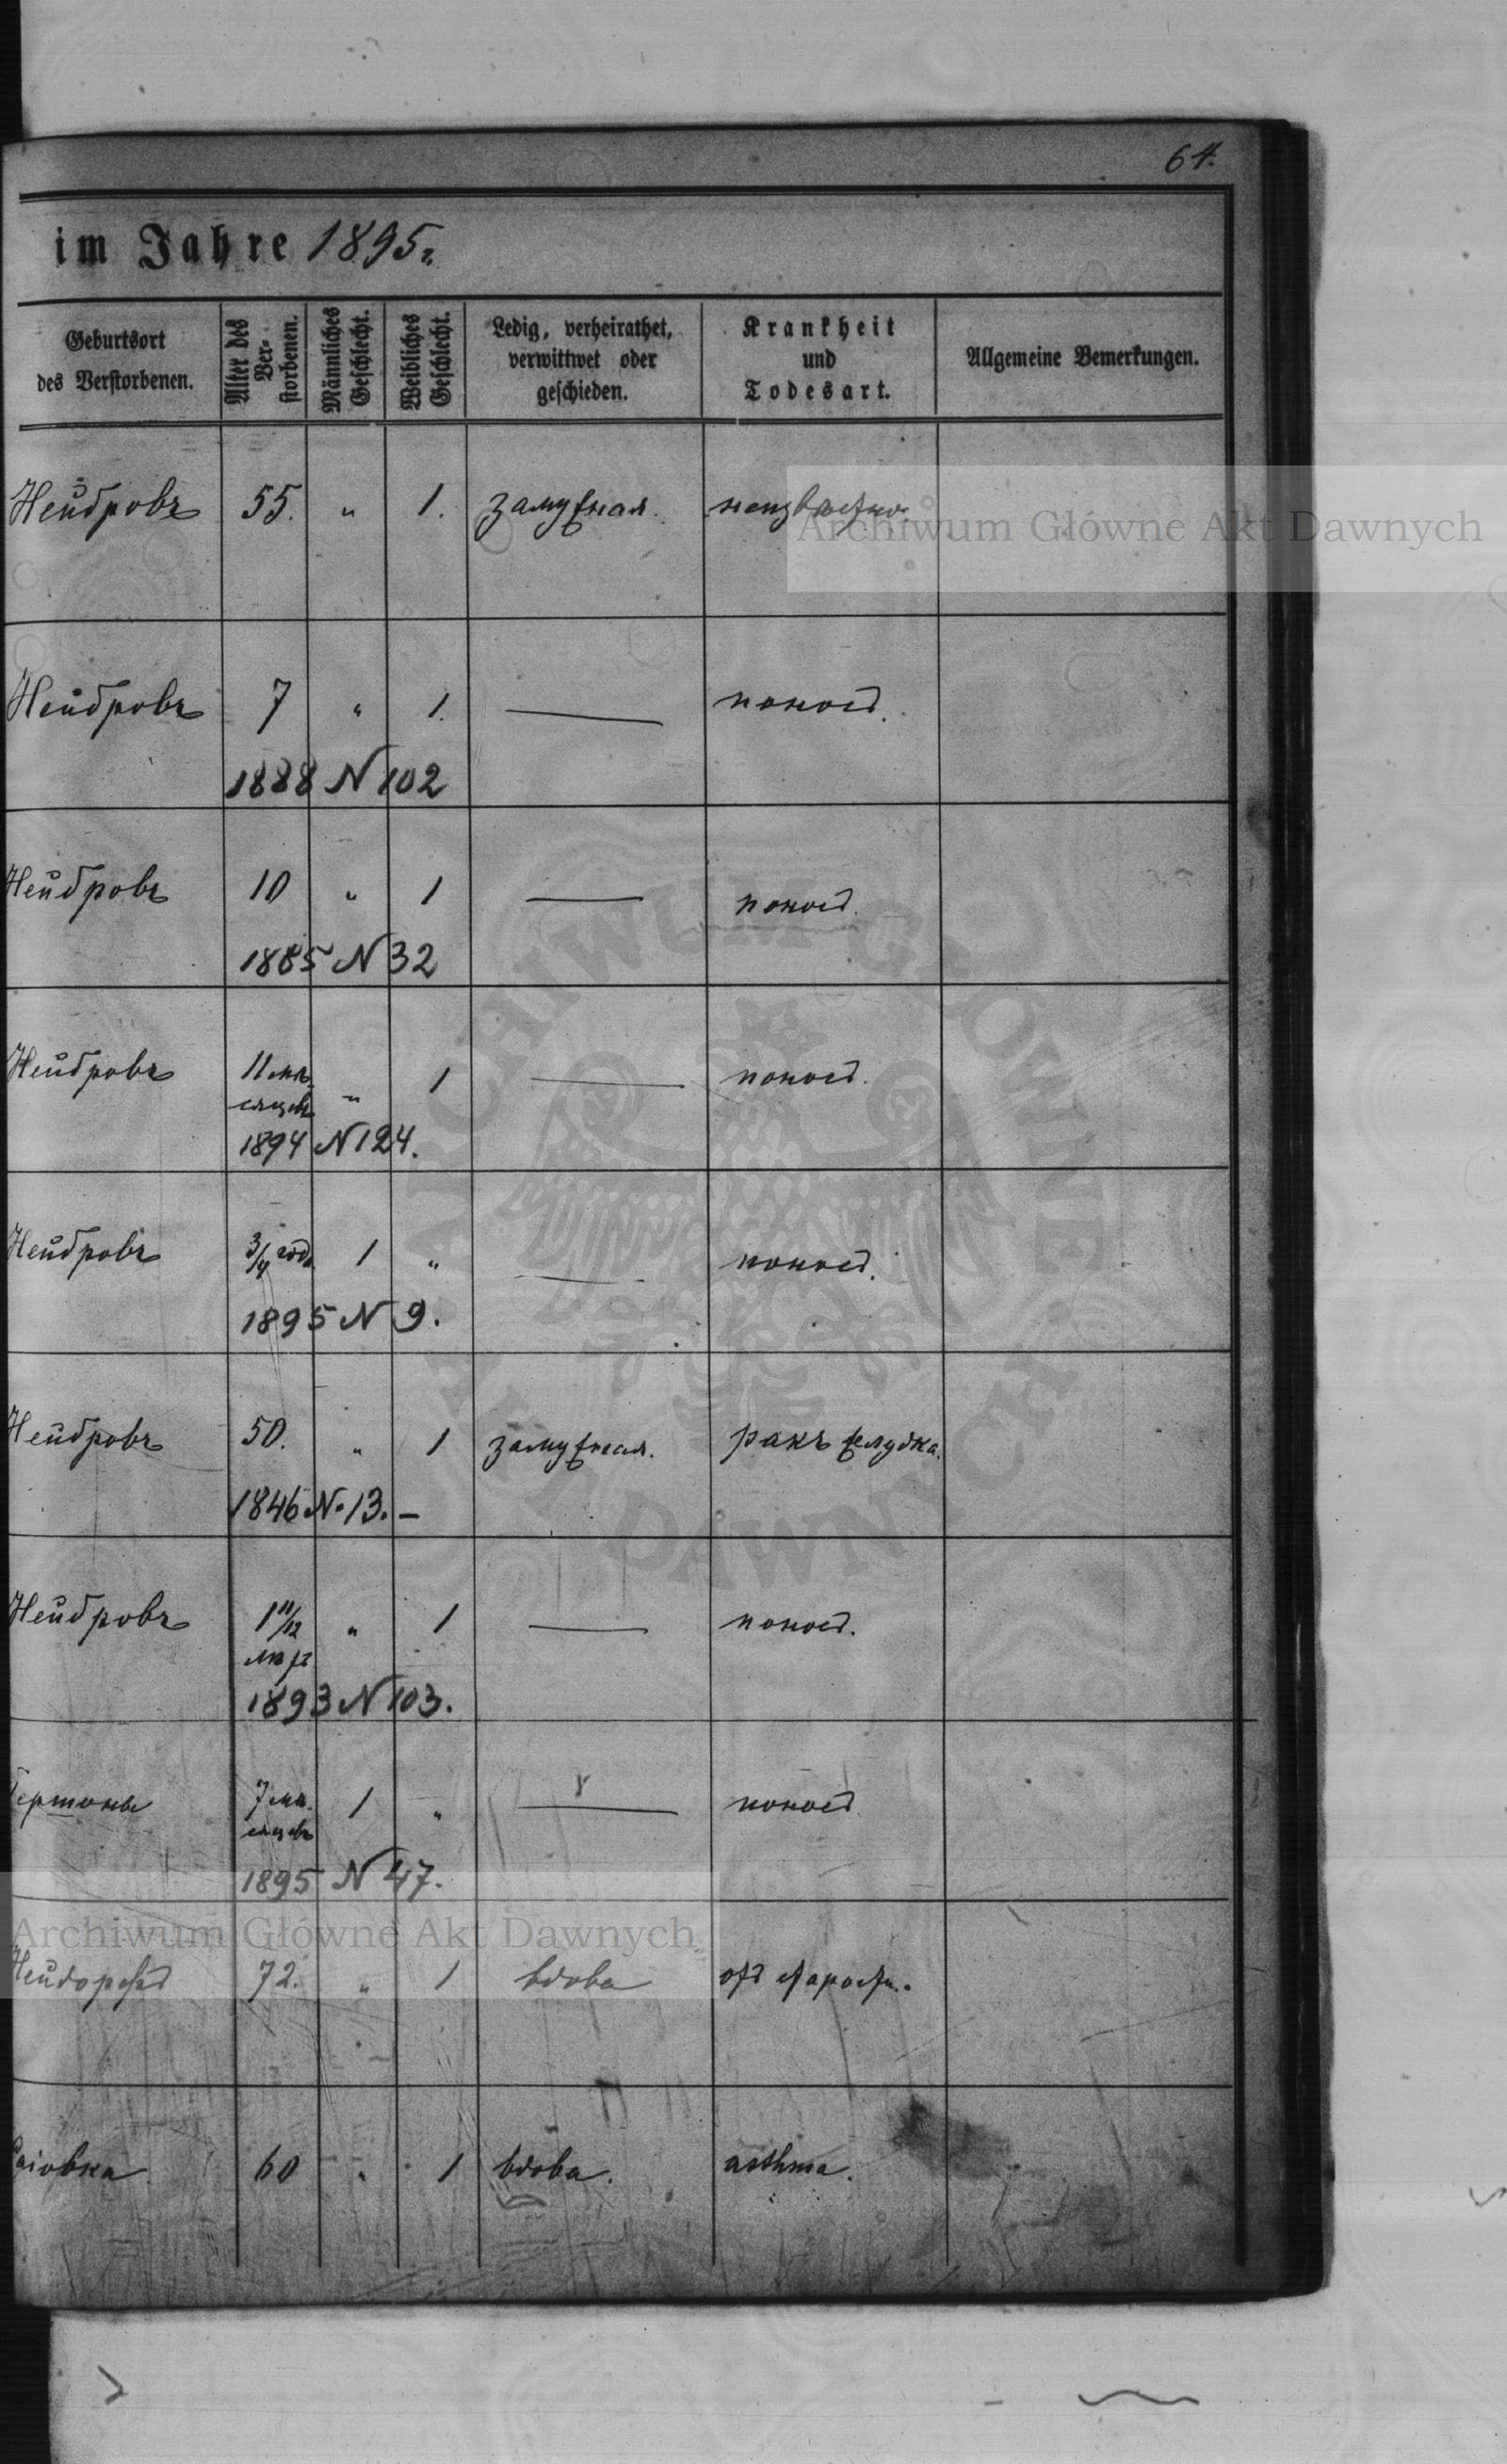 64.
im Jahre 1895.
Geburtsort des Verstorbenen. Alter des Verstorbenen. Männliches Geschlecht. Weibliches Geschlecht. Ledig, verheirathet, verwittwet oder geschieden. Krankheit und Todesart. Allgemeine Bemerkungen.
Нейдровъ 55. " 1. замужная. неизвѣстно.
Archiwum Główne Akt Dawnych
Нейдровъ 7 " 1. — поносъ.
1888 N 102
Нейдровъ 10 " 1 — поносъ.
1885 N 32
Нейдровъ 11 мѣ- " 1 — поносъ.
сяцевъ
1894 N 124.
Нейдровъ 3/4 года 1 " — поносъ.
1895 N 9.
Нейдровъ 50. " 1 замужная. ракъ желудка.
1846 N. 13. —
Нейдровъ 1 11/12 " 1 — поносъ.
1893 N 103.
7 мѣ- 1 " — поносъ
сяцевъ
1895 N 47.
Archiwum Główne Akt Dawnych
72. " 1 вдова отъ старости.
60 " 1 вдова. asthma.
ARCHIWUM GŁÓWNE AKT DAWNYCH